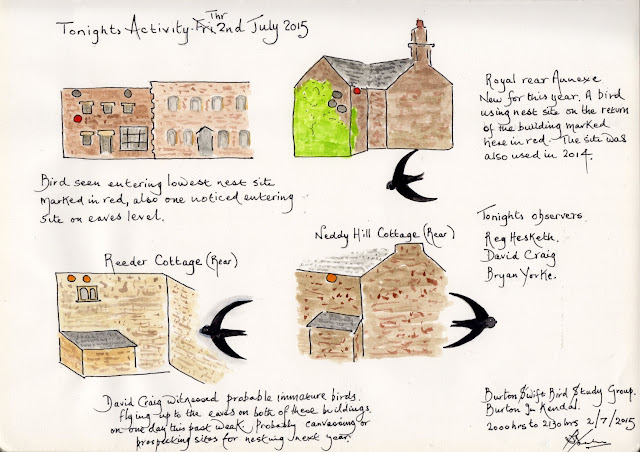 Tonights Activity. Fri Thr 2nd July 2015
Royal rear Annexe
New for this year. A bird
using nest site on the return
of the building marked
here in red. The site was
also used in 2014.
Bird seen entering lowest nest site
marked in red, also one noticed entering
site on eaves level.
Tonights observers
Reg Hesketh.
David Craig
Bryan Yorke.
Neddy Hill Cottage (Rear)
Reeder Cottage (Rear)
David Craig witnessed probable immature birds
flying up to the eaves on both of these buildings
on one day this past week. Probably canvassing or
prospecting sites for nesting next year.
Burton Swift Bird Study Group.
Burton In Kendal.
2000hrs to 2130hrs 2/7/2015